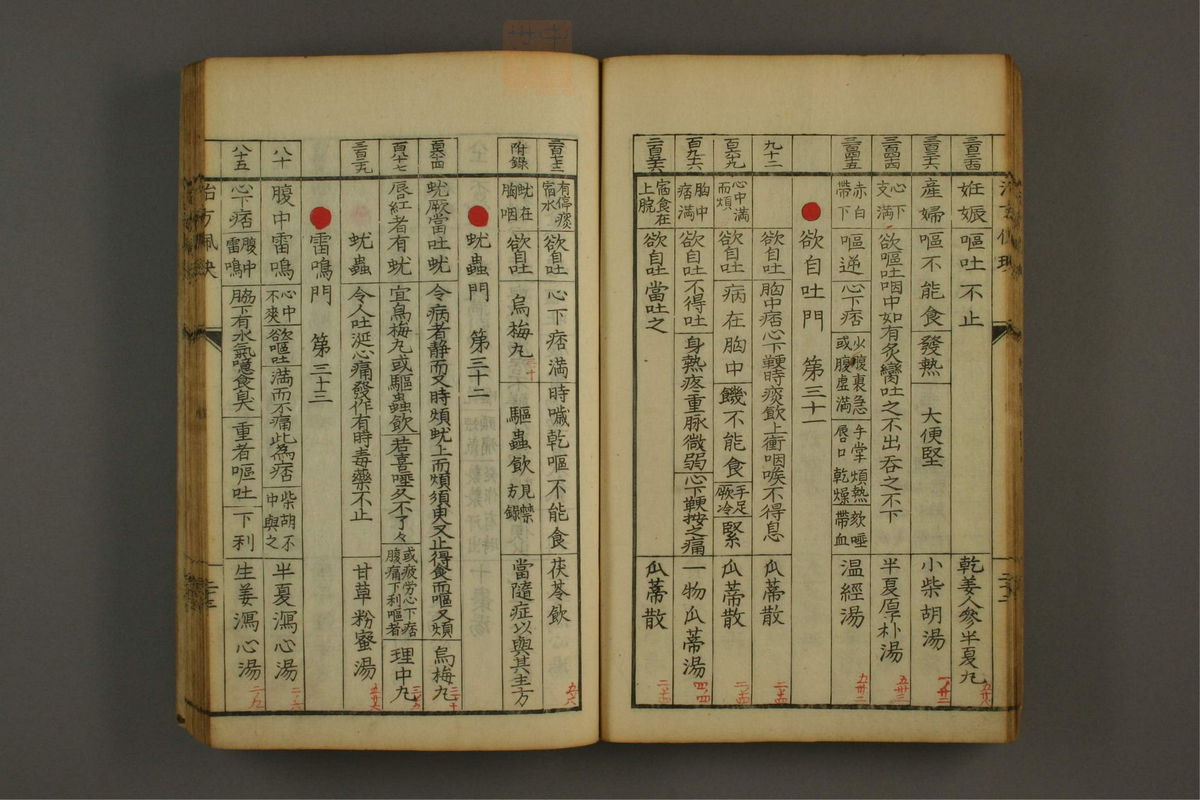 妊娠 嘔吐不止 乾姜人參半夏丸
產婦 嘔不能食 發熱 大便堅 小柴胡湯
心下支滿 欲嘔吐 咽中如有炙臠吐之不出吞之不下 半夏厚朴湯
赤白帶下 嘔逆 心下痞 或腹虛滿 手掌煩熱 唇口乾燥 帶血 温經湯
欲自吐門 第三十一
九十二 欲自吐 胸中痞心下鞕時痰飲上衝咽喉不得息 瓜蒂散
心中滿而煩 欲自吐 病在胸中 饑不能食 手足厥冷 緊 瓜蒂散
胸中痞滿 欲自吐不得吐 身熱疼重脉微弱 心下鞕按之痛 一物瓜蒂湯
宿食在上脘 欲自吐 當吐之 瓜蒂散
有停痰宿水 欲自吐 心下痞滿 時噦乾嘔不能食 茯苓飲
附錄 蚘在胸咽 欲自吐 烏梅丸 驅蟲飲 見禁方錄 當隨症以與其主方
蚘蟲門 第三十二
蚘厥當吐蚘 令病者靜而又時煩蚘上而煩須臾又止得食而嘔又煩 烏梅丸
唇紅者有蚘 宜烏梅丸或驅蟲飲 若喜唾久不了々 或疲勞心下痞腹痛下利嘔者 理中丸
蚘蟲 令人吐涎心痛發作有時毒藥不止 甘草粉蜜湯
雷鳴門 第三十三
八十 腹中雷鳴 心中不爽 欲嘔吐 滿而不痛此為痞 柴胡不中與之 半夏瀉心湯
八十五 心下痞 腹中雷鳴 脇下有水氣噫食臭 重者嘔吐 下利 生姜瀉心湯